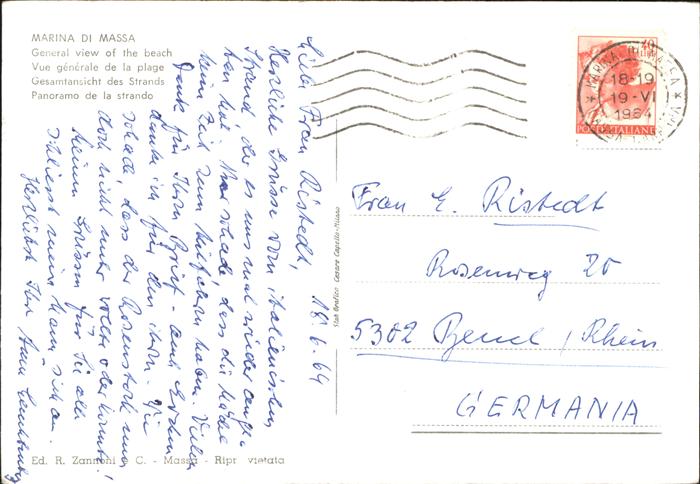 MARINA DI MASSA
General view of the beach
Vue générale de la plage
Gesamtansicht des Strands
Panoramo de la strando
18. 6. 64
Liebe Frau Ristedt,
Herzliche Grüsse vom italienischen
Strand, der es uns mal wieder ange-
tan hat. Nur schade, dass die Mädel
keine Zeit zum Mitfahren haben. Vielen
Dank für Ihren Brief - auch Erdmu
danke ich für den ihren. Wie
schade, dass der Rosenstock nun
doch nicht unter
meinen Grüssen für Sie alle
schliesst mein Mann sich an.
Herzlichst Ihre
Frau E. Ristedt
Rosenweg 20
5302 Beuel / Rhein
GERMANIA
40
MARINA DI MASSA
18-19
19-VI
1964
POSTE ITALIANE
Stab. Grafico Cesare Capello-Milano
Ed. R. Zannoni & C. - Massa - Ripr. vietata